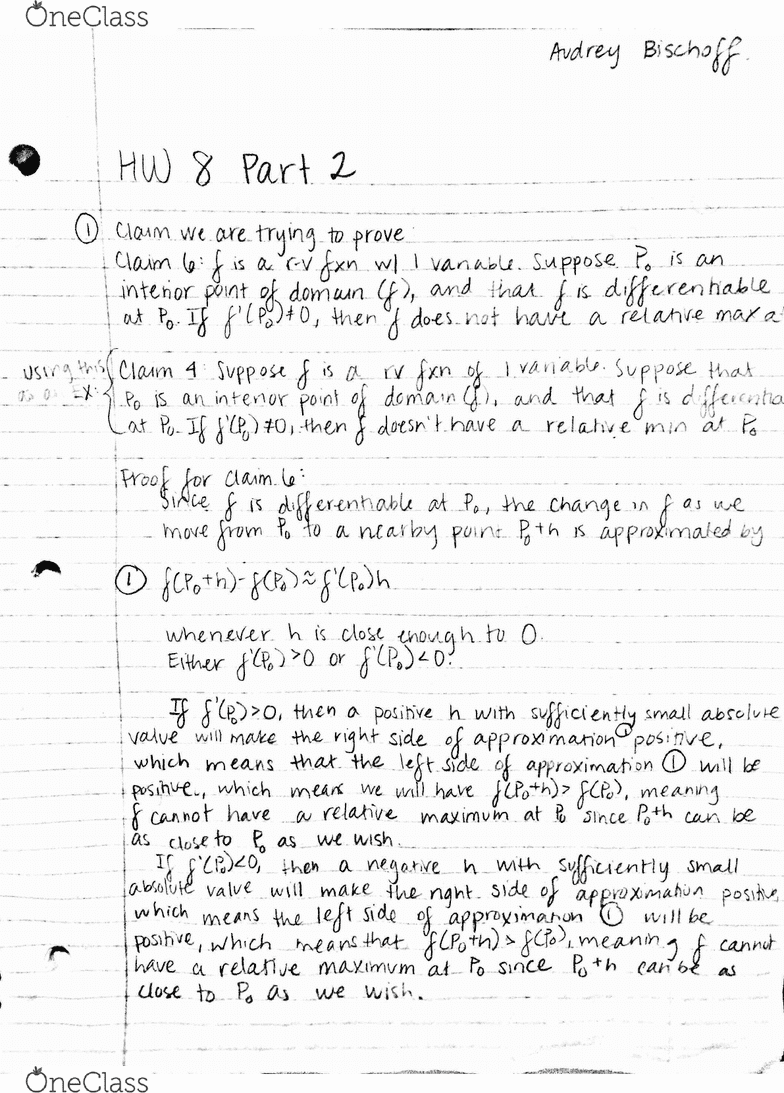 OneClass
Audrey Bischoff.
HW 8 Part 2
① Claim we are trying to prove
Claim 6: f is a r-v fxn w/ 1 variable. Suppose P₀ is an
interior point of domain (f), and that f is differentiable
at P₀. If f'(P₀)≠0, then f does not have a relative max a
using this
as a Ex:
Claim 4: Suppose f is a rv fxn of 1 variable. Suppose that
P₀ is an interior point of domain (f), and that f is differentia
at P₀. If f'(P₀)≠0, then f doesn't have a relative min at P₀
Proof for Claim 6:
Since f is differentiable at P₀, the change in f as we
move from P₀ to a nearby point P₀+h is approximated by
① f(P₀+h)-f(P₀)≈f'(P₀)h
whenever h is close enough to 0.
Either f'(P₀)>0 or f'(P₀)<0.
If f'(P₀)>0, then a positive h with sufficiently small absolute
value will make the right side of approximation ① positive,
which means that the left side of approximation ① will be
positive, which means we will have f(P₀+h)>f(P₀), meaning
f cannot have a relative maximum at P₀ since P₀+h can be
as close to P₀ as we wish.
If f'(P₀)<0, then a negative h with sufficiently small
absolute value will make the right side of approximation positive,
which means the left side of approximation ① will be
positive, which means that f(P₀+h)>f(P₀), meaning f cannot
have a relative maximum at P₀ since P₀+h can be as
close to P₀ as we wish.
OneClass